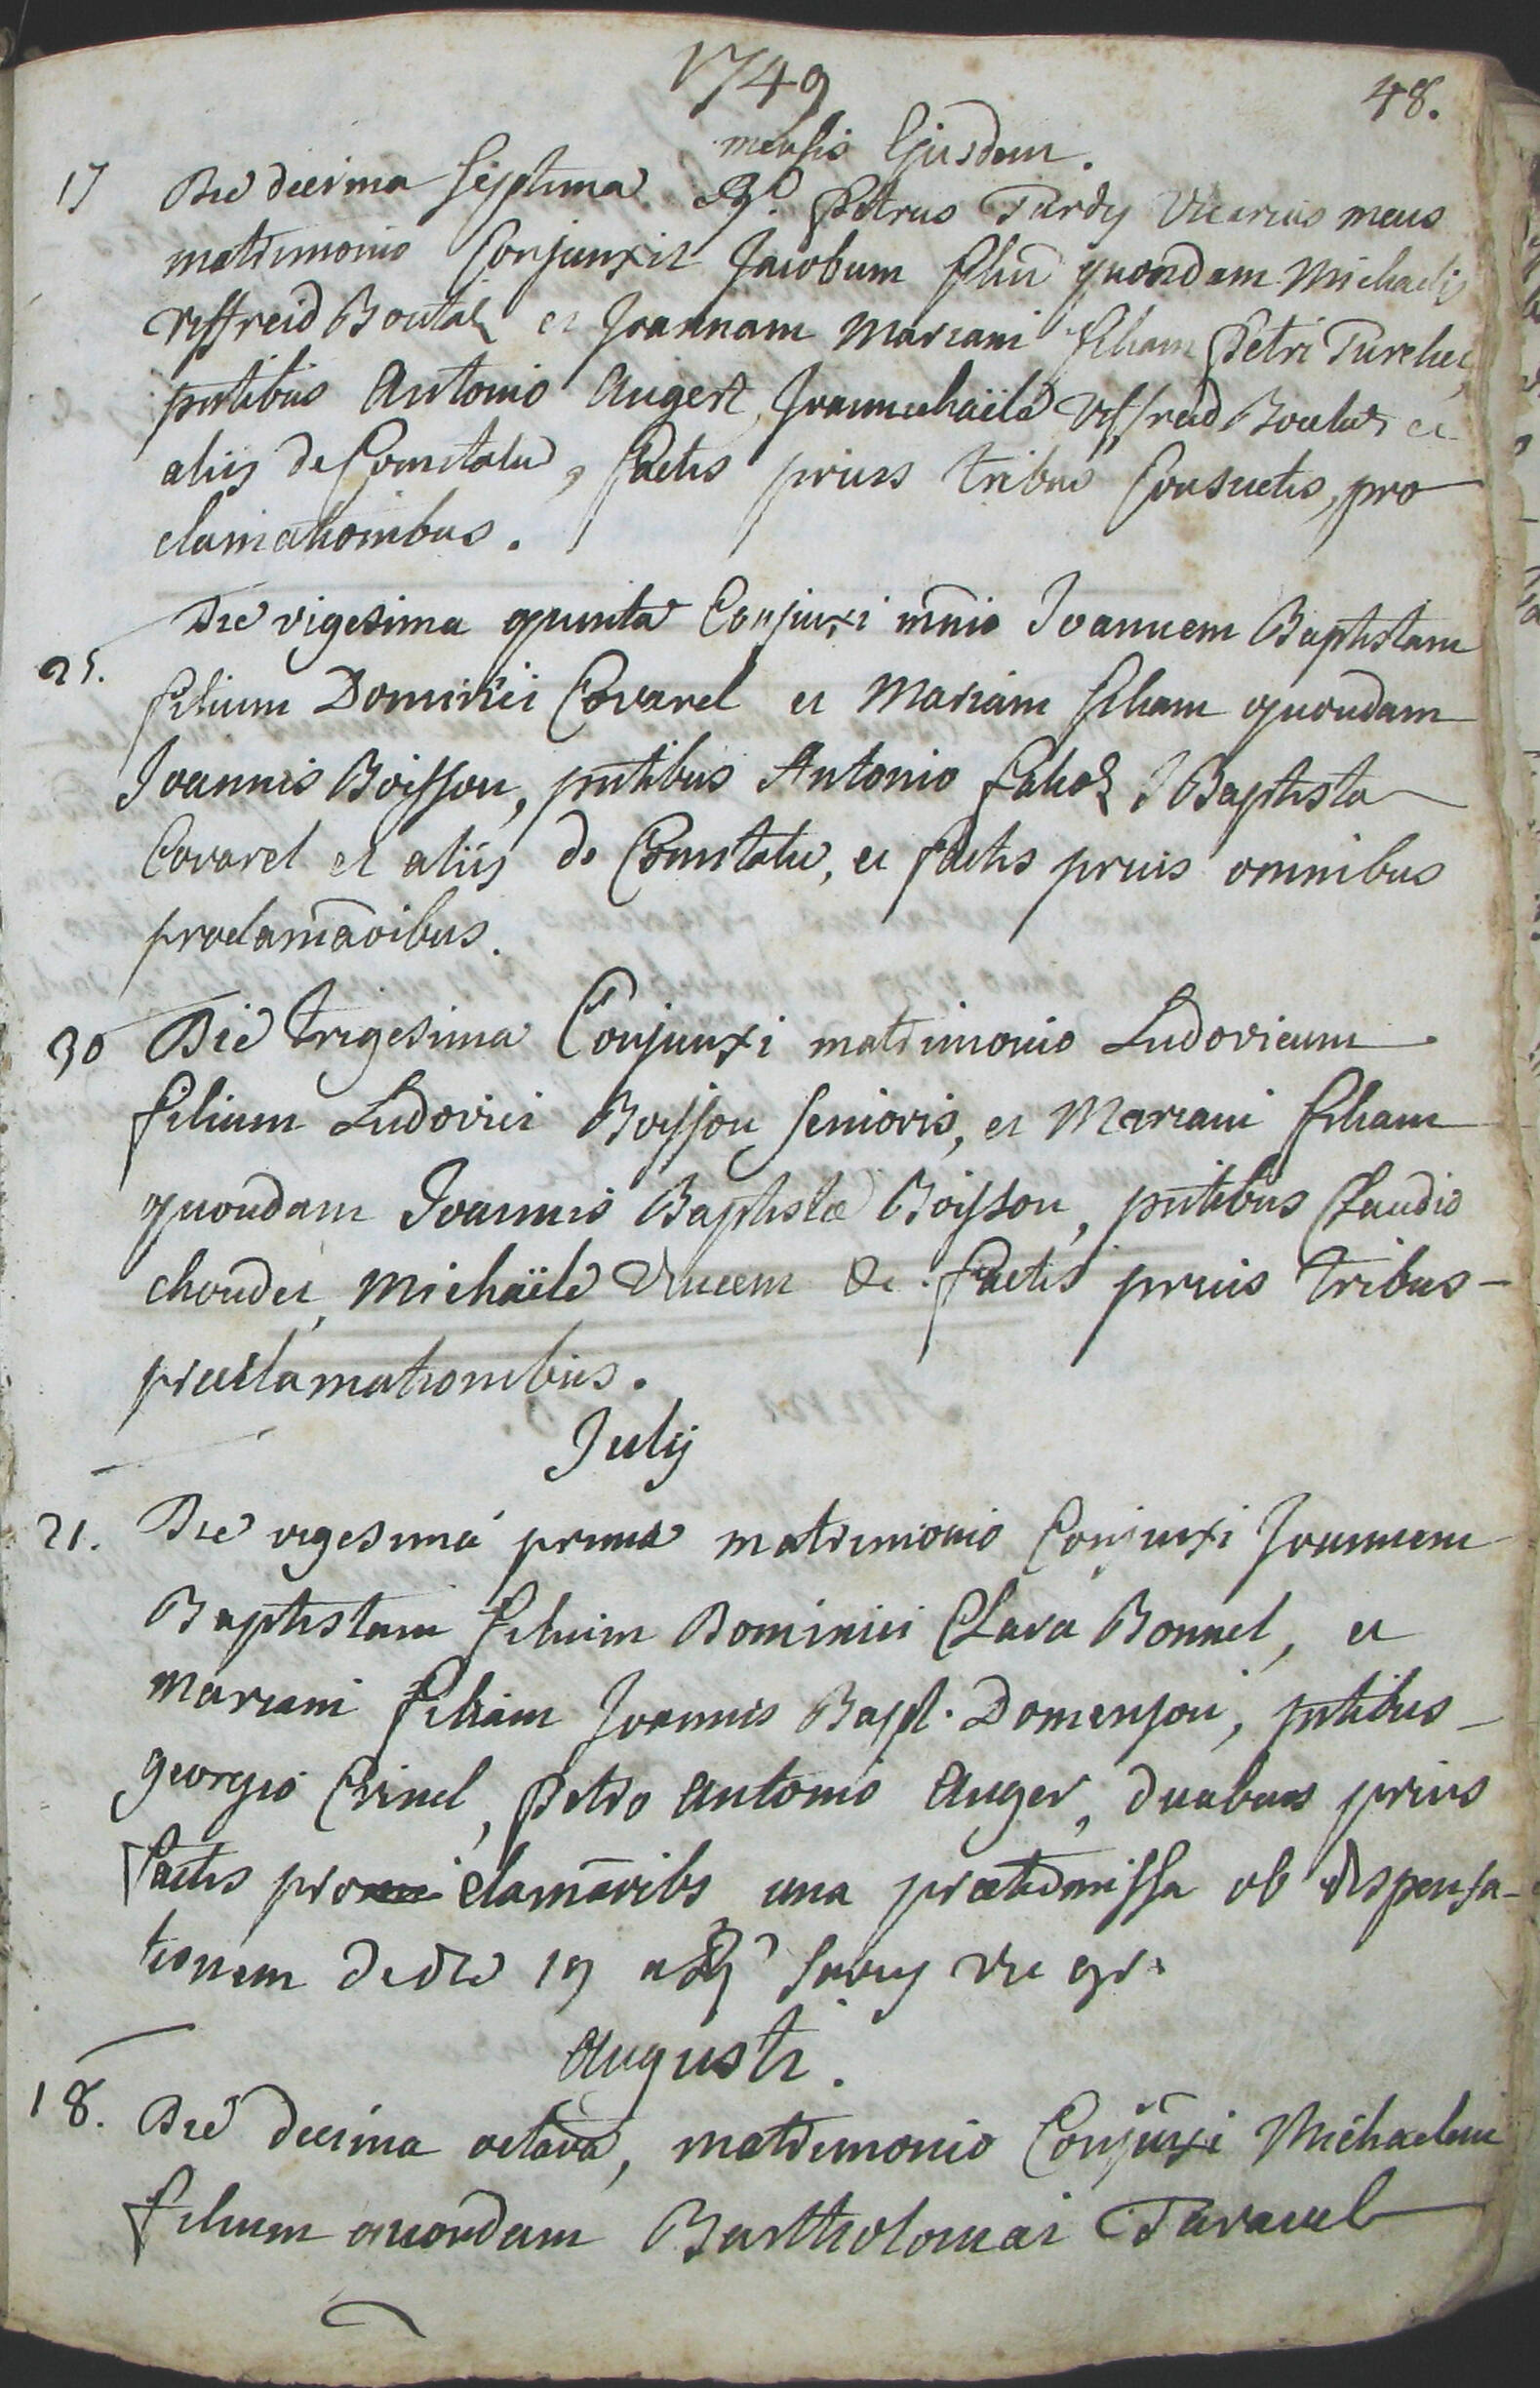 1749
48.
mensis Ejusdem.
17 Die decima septima Rd. Petrus Tardy Vicarius meus
matrimonio Conjunxit Jacobum filiū quondam Michaelis
reffreid Boutaz et Joannam Mariam filiam Petri Turcluc,
pntibus Antonio Augert, Joanmichaële Reffreid Boutaz et
aliis de Comitatu, factis prius tribus Consuetis, pro
clamationibus.
Die vigesima quinta Conjuxi mnio Joannem Baptistam
25.
filium Dominici Covarel et Mariam filiam quondam
Joannis Boisson, pntibus Antonio faluoz J Baptista
Covarel et aliis de Comitatu, et factis prius omnibus
proclamāoibus.
30 Die trigesima Conjunxi matrimonio Ludovicum
filium Ludovici Boisson senioris, et Mariam filiam
quondam Joannis Baptistæ Boisson, pntibus Claudio
choudet, Michaële &c. factis prius tribus
proclamationibus.
Julij
21. Die vigesimá prima matrimonio Conjuxi Joannem
Baptistam filium Dominici Clara Bonnel, et
Mariam filiam Joannis Bapt. Domenjon, pntibus
georgio Crinel, Petro Antonio Auger, duabus prius
factis proclamāoibs una prætermissa ob dispensa-
tionem de die 19 a Rd Savey vic gr.
Augusti.
18. Die decima octava, matrimonio Conjuxi Michaelem
filium quondam Bartholomæi Taravel